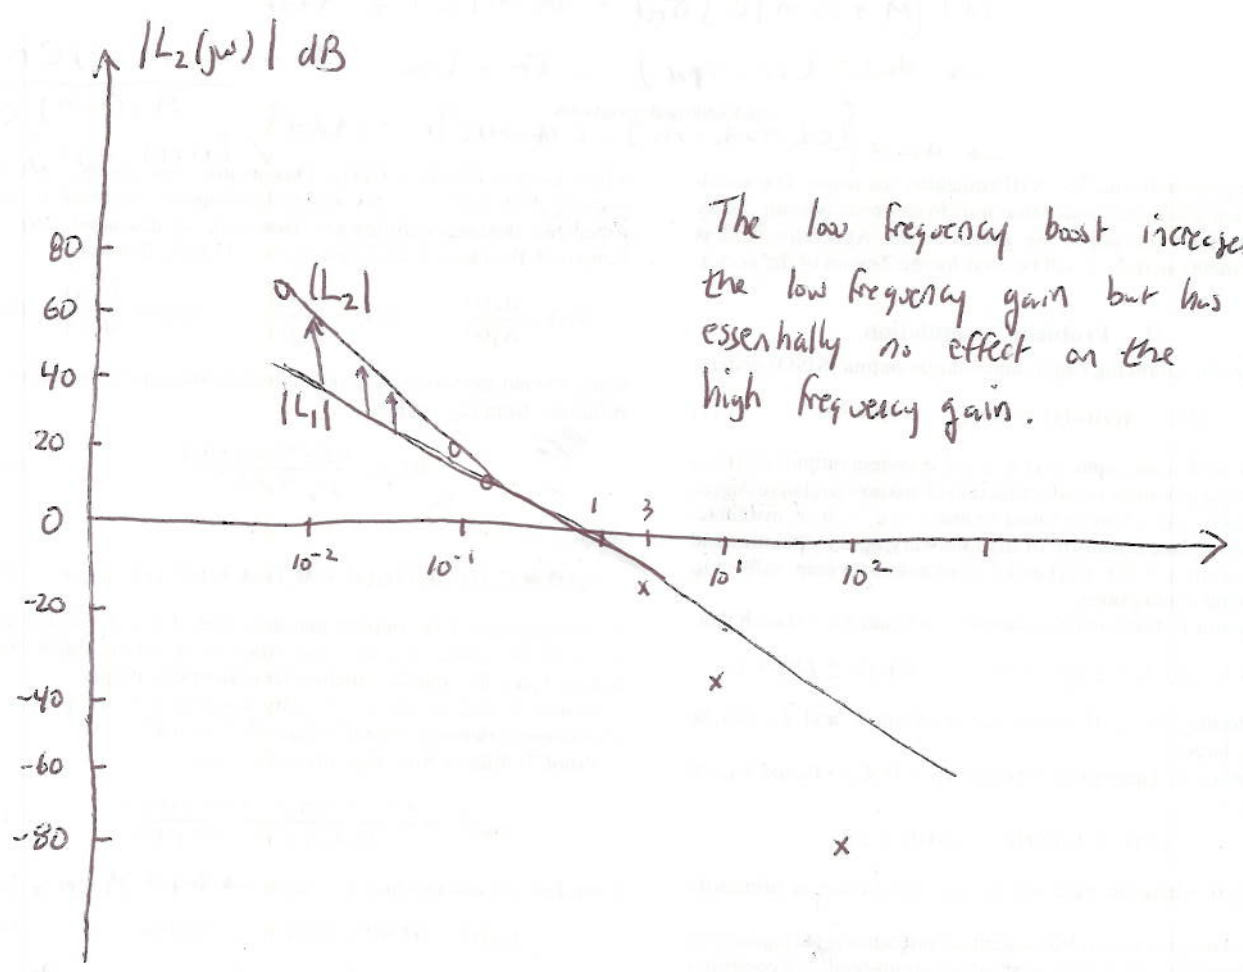 |L₂(jω)| dB
80
60
40
20
0
-20
-40
-60
-80
|L₂|
|L₁|
10⁻²
10⁻¹
1
3
10¹
10²
The low frequency boost increases
the low frequency gain but has
essentially no effect on the
high frequency gain.